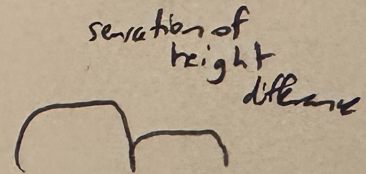 sensation of
height
difference